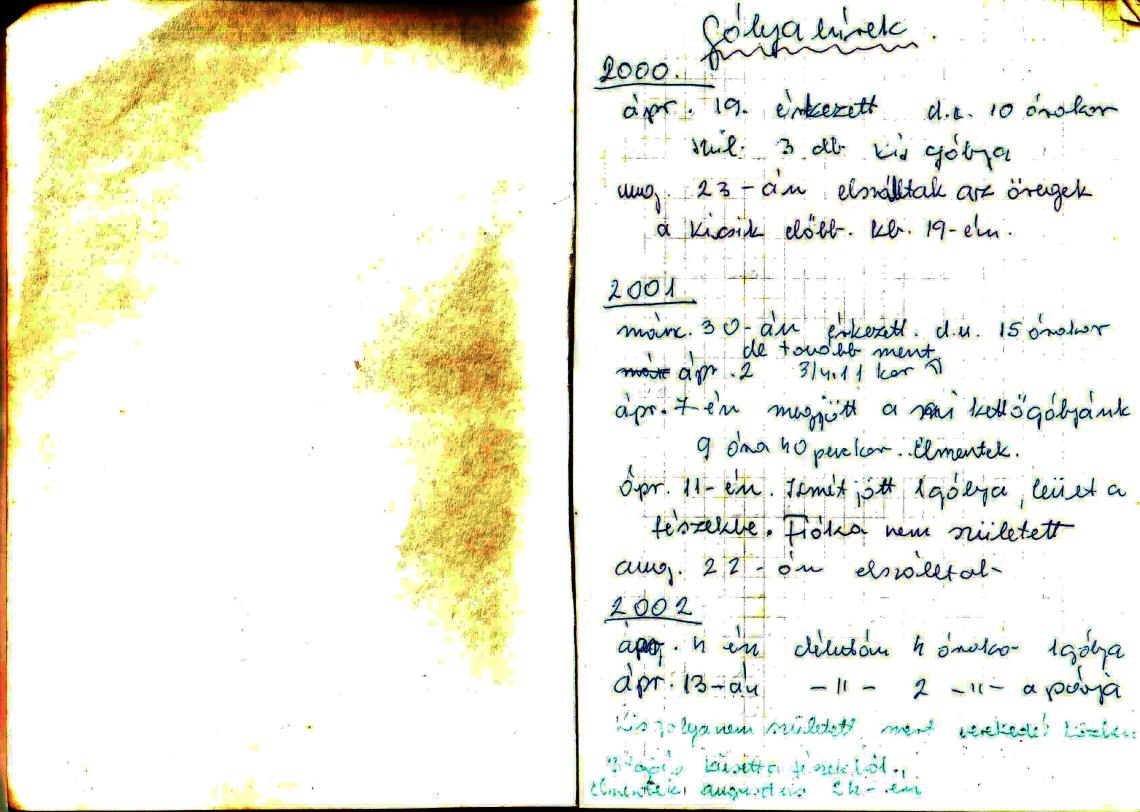 Gólya hírek.
2000.
ápr. 19. érkezett d.e. 10 órakor
szül. 3 db kis gólya
aug. 23-án elszálltak az öregek
a kicsik előbb. kb. 19-én.
2001.
márc. 30-án érkezett. d.u. 15 órakor
de tovább ment
ápr. 2 3/4 11 kor
ápr. 7-én megjött a mi kettőgólyánk
9 óra 40 perckor.. Elmentek.
ápr. 11-én. Ismét jött 1 gólya, leült a
fészekbe. Fióka nem született
aug. 22-án elszálltak
2002
ápr. 4 én délután 4 órakor 1 gólya
ápr. 13-án -"- 2 -"- a párja
Kis gólya nem született mert verekedés közben
3 tojás kiesett a fészekből.
Elmentek augusztus 24-én